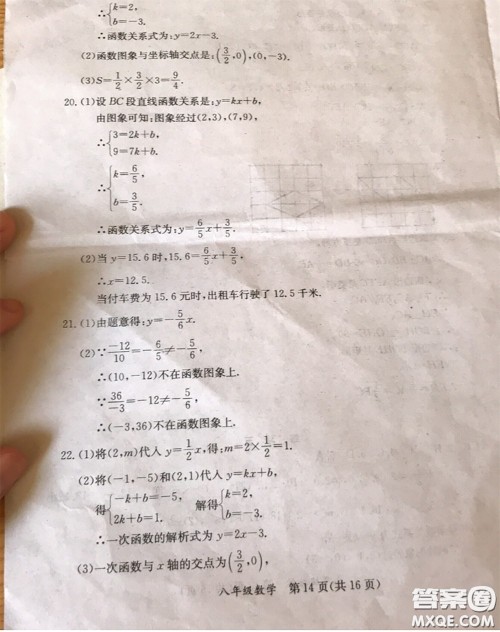 ∴{k=2, b=-3.
∴函数关系式为:y=2x-3.
(2)函数图象与坐标轴交点是:(3/2,0),(0,-3).
(3)S=1/2×3/2×3=9/4.
20.(1)设BC段直线函数关系是:y=kx+b,
由图象可知:图象经过(2,3),(7,9),
∴{3=2k+b, 9=7k+b.
∴{k=6/5, b=3/5.
∴函数关系式为:y=6/5x+3/5.
(2)当y=15.6时,15.6=6/5x+3/5,
∴x=12.5.
当付车费为15.6元时,出租车行驶了12.5千米.
21.(1)由题意得:y=-5/6x.
(2)∵-12/10=-6/5≠-5/6,
∴(10,-12)不在函数图象上.
∵36/-3=-12≠-5/6,
∴(-3,36)不在函数图象上.
22.(1)将(2,m)代入y=1/2x,得:m=2×1/2=1.
(2)将(-1,-5)和(2,1)代入y=kx+b,
得{-k+b=-5, 2k+b=1. 解得{k=2, b=-3.
∴一次函数的解析式为y=2x-3.
(3)一次函数与x轴的交点为(3/2,0),
八年级数学 第14页(共16页)
答案圈
MXQE.COM